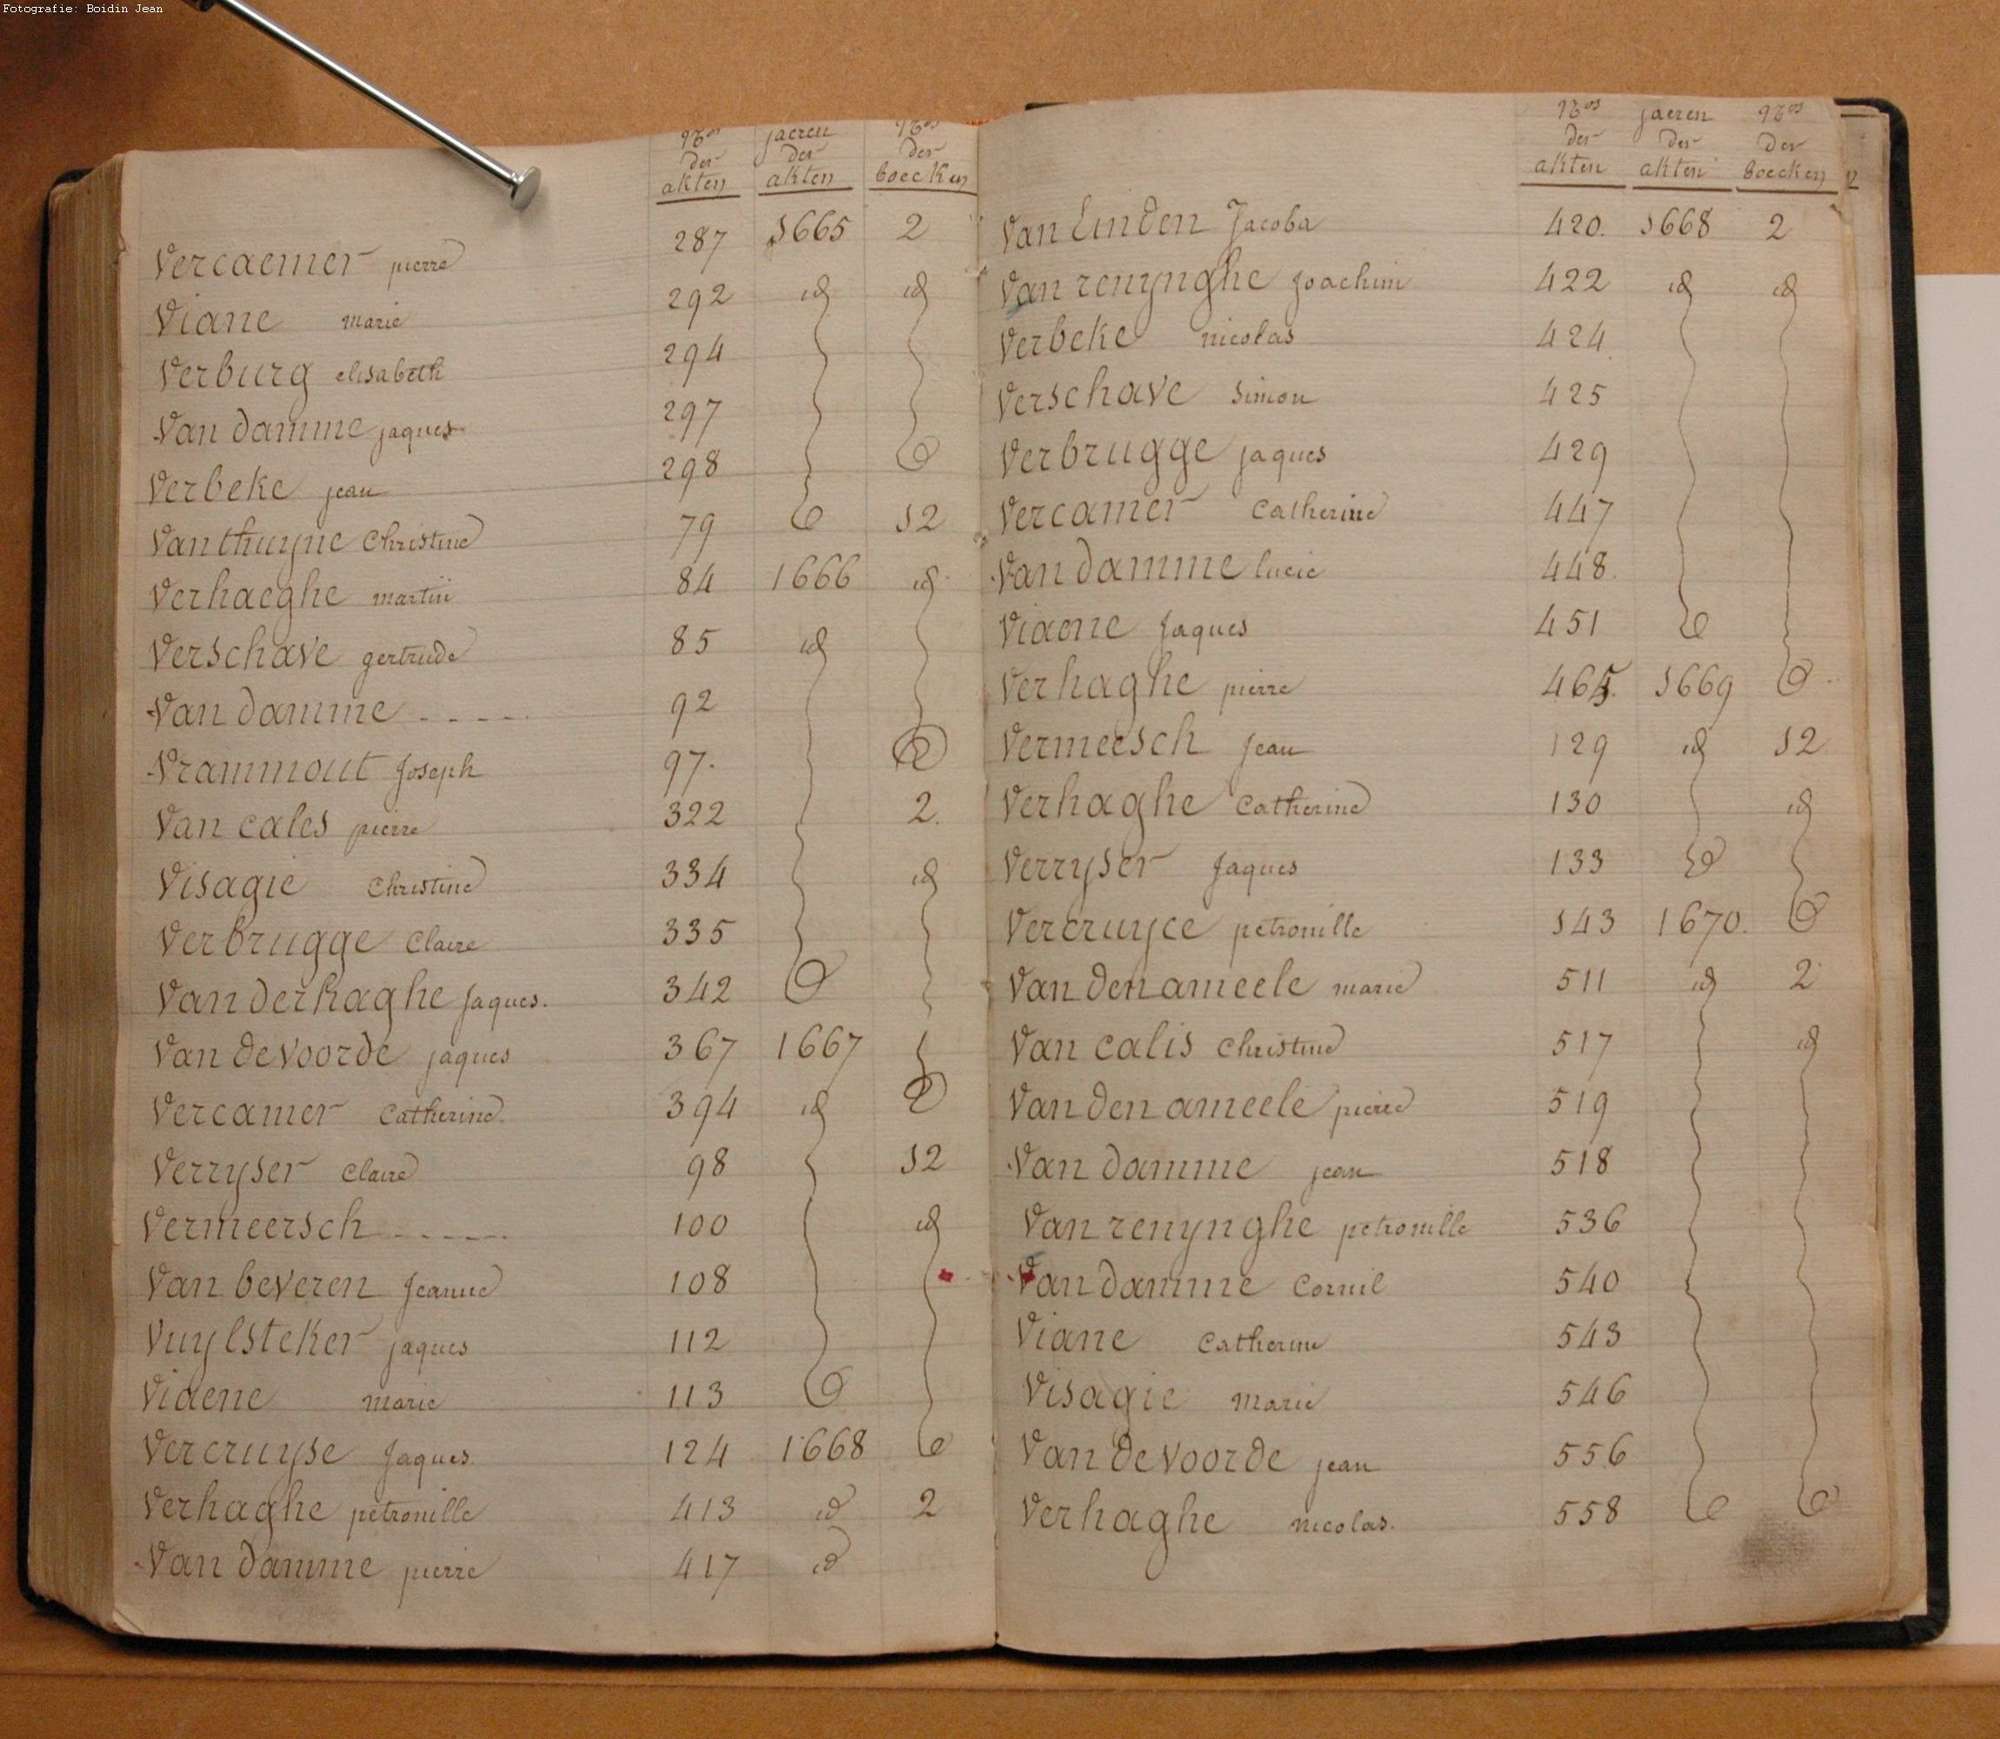 Fotografie: Boidin Jean
Nos jaeren Nos
der der der
akten akten boecken
Vercaemer pierre 287 1665 2
Viane marie 292 id id
Verburg elisabeth 294
Van damme jaques 297
Verbeke jean 298
Van thuyne Christine 79 12
Verhaeghe martin 84 1666 id
Verschave gertrude 85 id
Van damme ----- 92
Vrammout Joseph 97.
Van cales pierre 322 2.
Visagie Christine 334 id
Verbrugge Claire 335
Van derhaghe Jaques. 342
Van de voorde jaques 367 1667
Vercamer Catherine. 394 id
Verryser Claire 98 12
Vermeersch ----- 100 id
Van beveren Jeanne 108
Vuylsteker jaques 112
Viaene marie 113
Vercruyse Jaques 124 1668
Verhaghe petronille 413 id 2
Van damme pierre 417 id
Nos jaeren Nos
der der der
akten akten boecken
Van Linden Jacoba 420. 1668 2
Van renynghe Joachim 422 id id
Verbeke nicolas 424
Verschave Simon 425
Verbrugge jaques 429
Vercamer Catherine 447
Van damme lucie 448.
Viaene Jaques 451
Verhaghe pierre 465. 1669
Vermeesch Jean 129 id 12
Verhaghe Catherine 130 id
Verryser Jaques 133
Vercruyce petronille 143 1670.
Van den ameele marie 511 id 2
Van calis Christine 517 id
Van den ameele pierre 519
Van damme jean 518
Van renynghe petronille 536
Van damme Cornil 540
Viane Catherine 543
Visagie Marie 546
Van de voorde jean 556
Verhaghe nicolas. 558